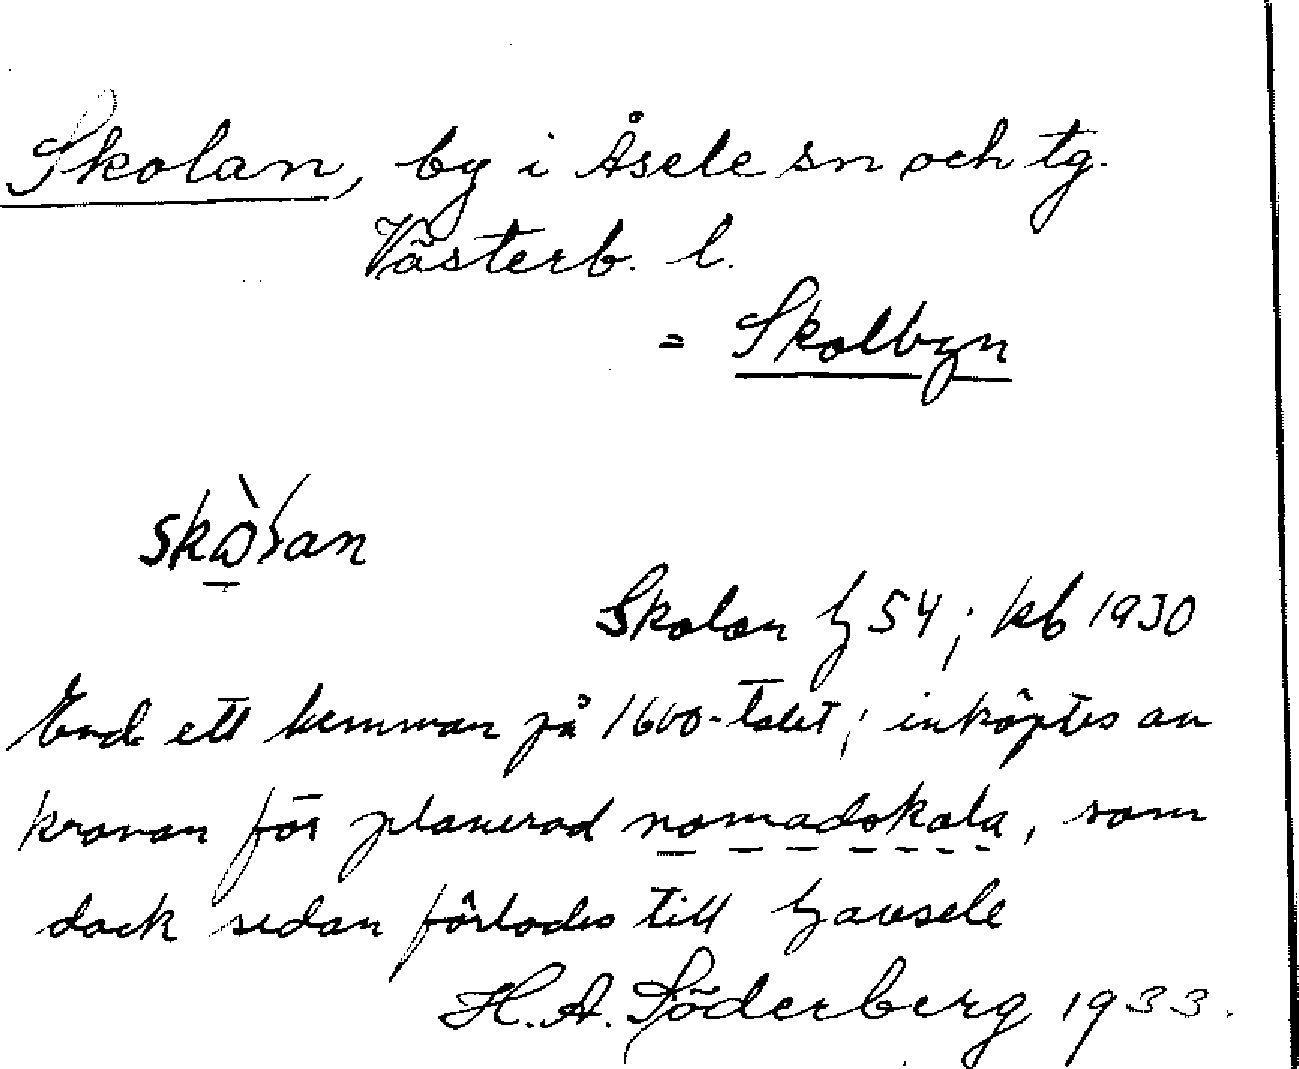 Skolan, by i Åsele sn och tg.
Västerb. l.
= Skolbyn
Skolan 54; kb 1930
End. ett hemman på 1600-talet; inköptes av
kronan för planerad nomadskola, som
dock sedan förlades till Gavsele
H. A. Söderberg 1933.